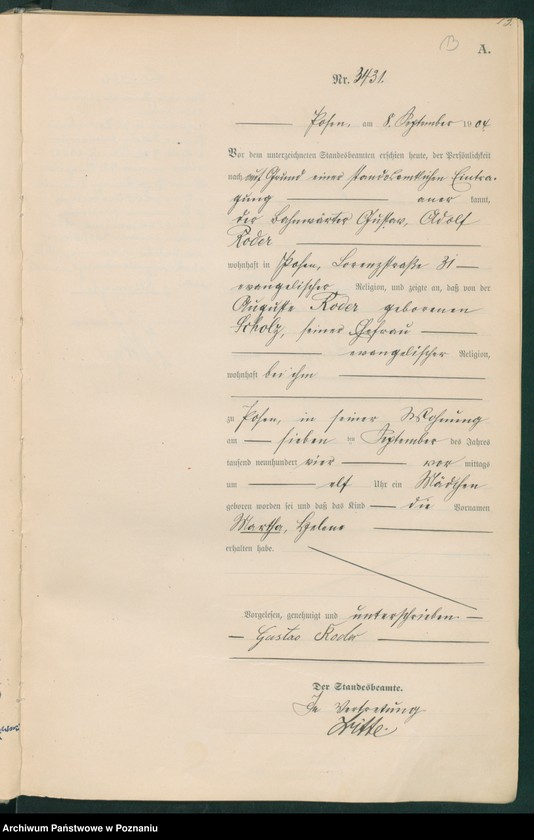 12
B
A.
Nr. 3431.
Posen, am 8. September 1904.
Vor dem unterzeichneten Standesbeamten erschien heute, der Persönlichkeit
nach auf Grund einer standesamtlichen Eintra-
gung aner kannt,
der Bahnwärter Gustav, Adolf
Roder
wohnhaft in Posen, Lorenzstraße 31
evangelischer Religion, und zeigte an, daß von der
Auguste Roder geborenen
Scholz, seiner Ehefrau
evangelischer Religion,
wohnhaft bei ihm
zu Posen, in seiner Wohnung
am sieben ten September des Jahres
tausend neunhundert vier vor mittags
um elf Uhr ein Mädchen
geboren worden sei und daß das Kind die Vornamen
Martha, Helene
erhalten habe.
Vorgelesen, genehmigt und unterschrieben
Gustav Roder
Der Standesbeamte.
In Vertretung
Witte.
Archiwum Państwowe w Poznaniu